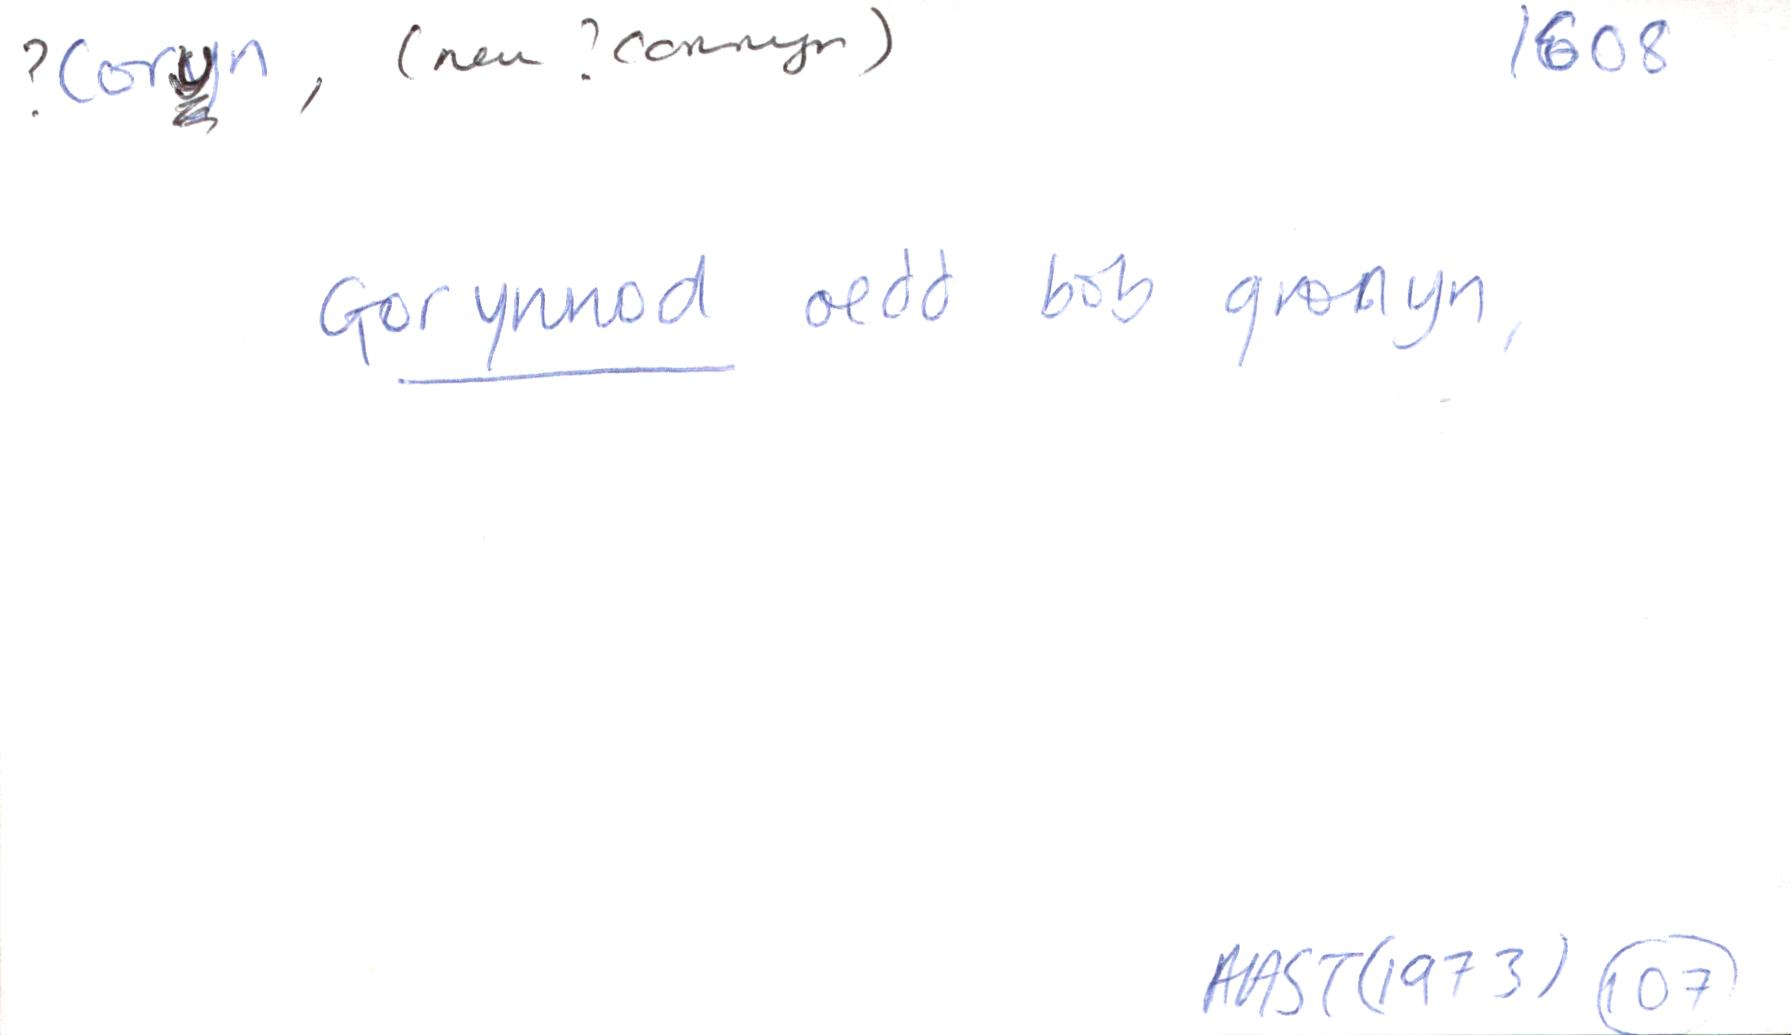 ?Coryn, (neu ?connyn) 1608
Gorynnod oedd bob gronyn,
AAST (1973) 107